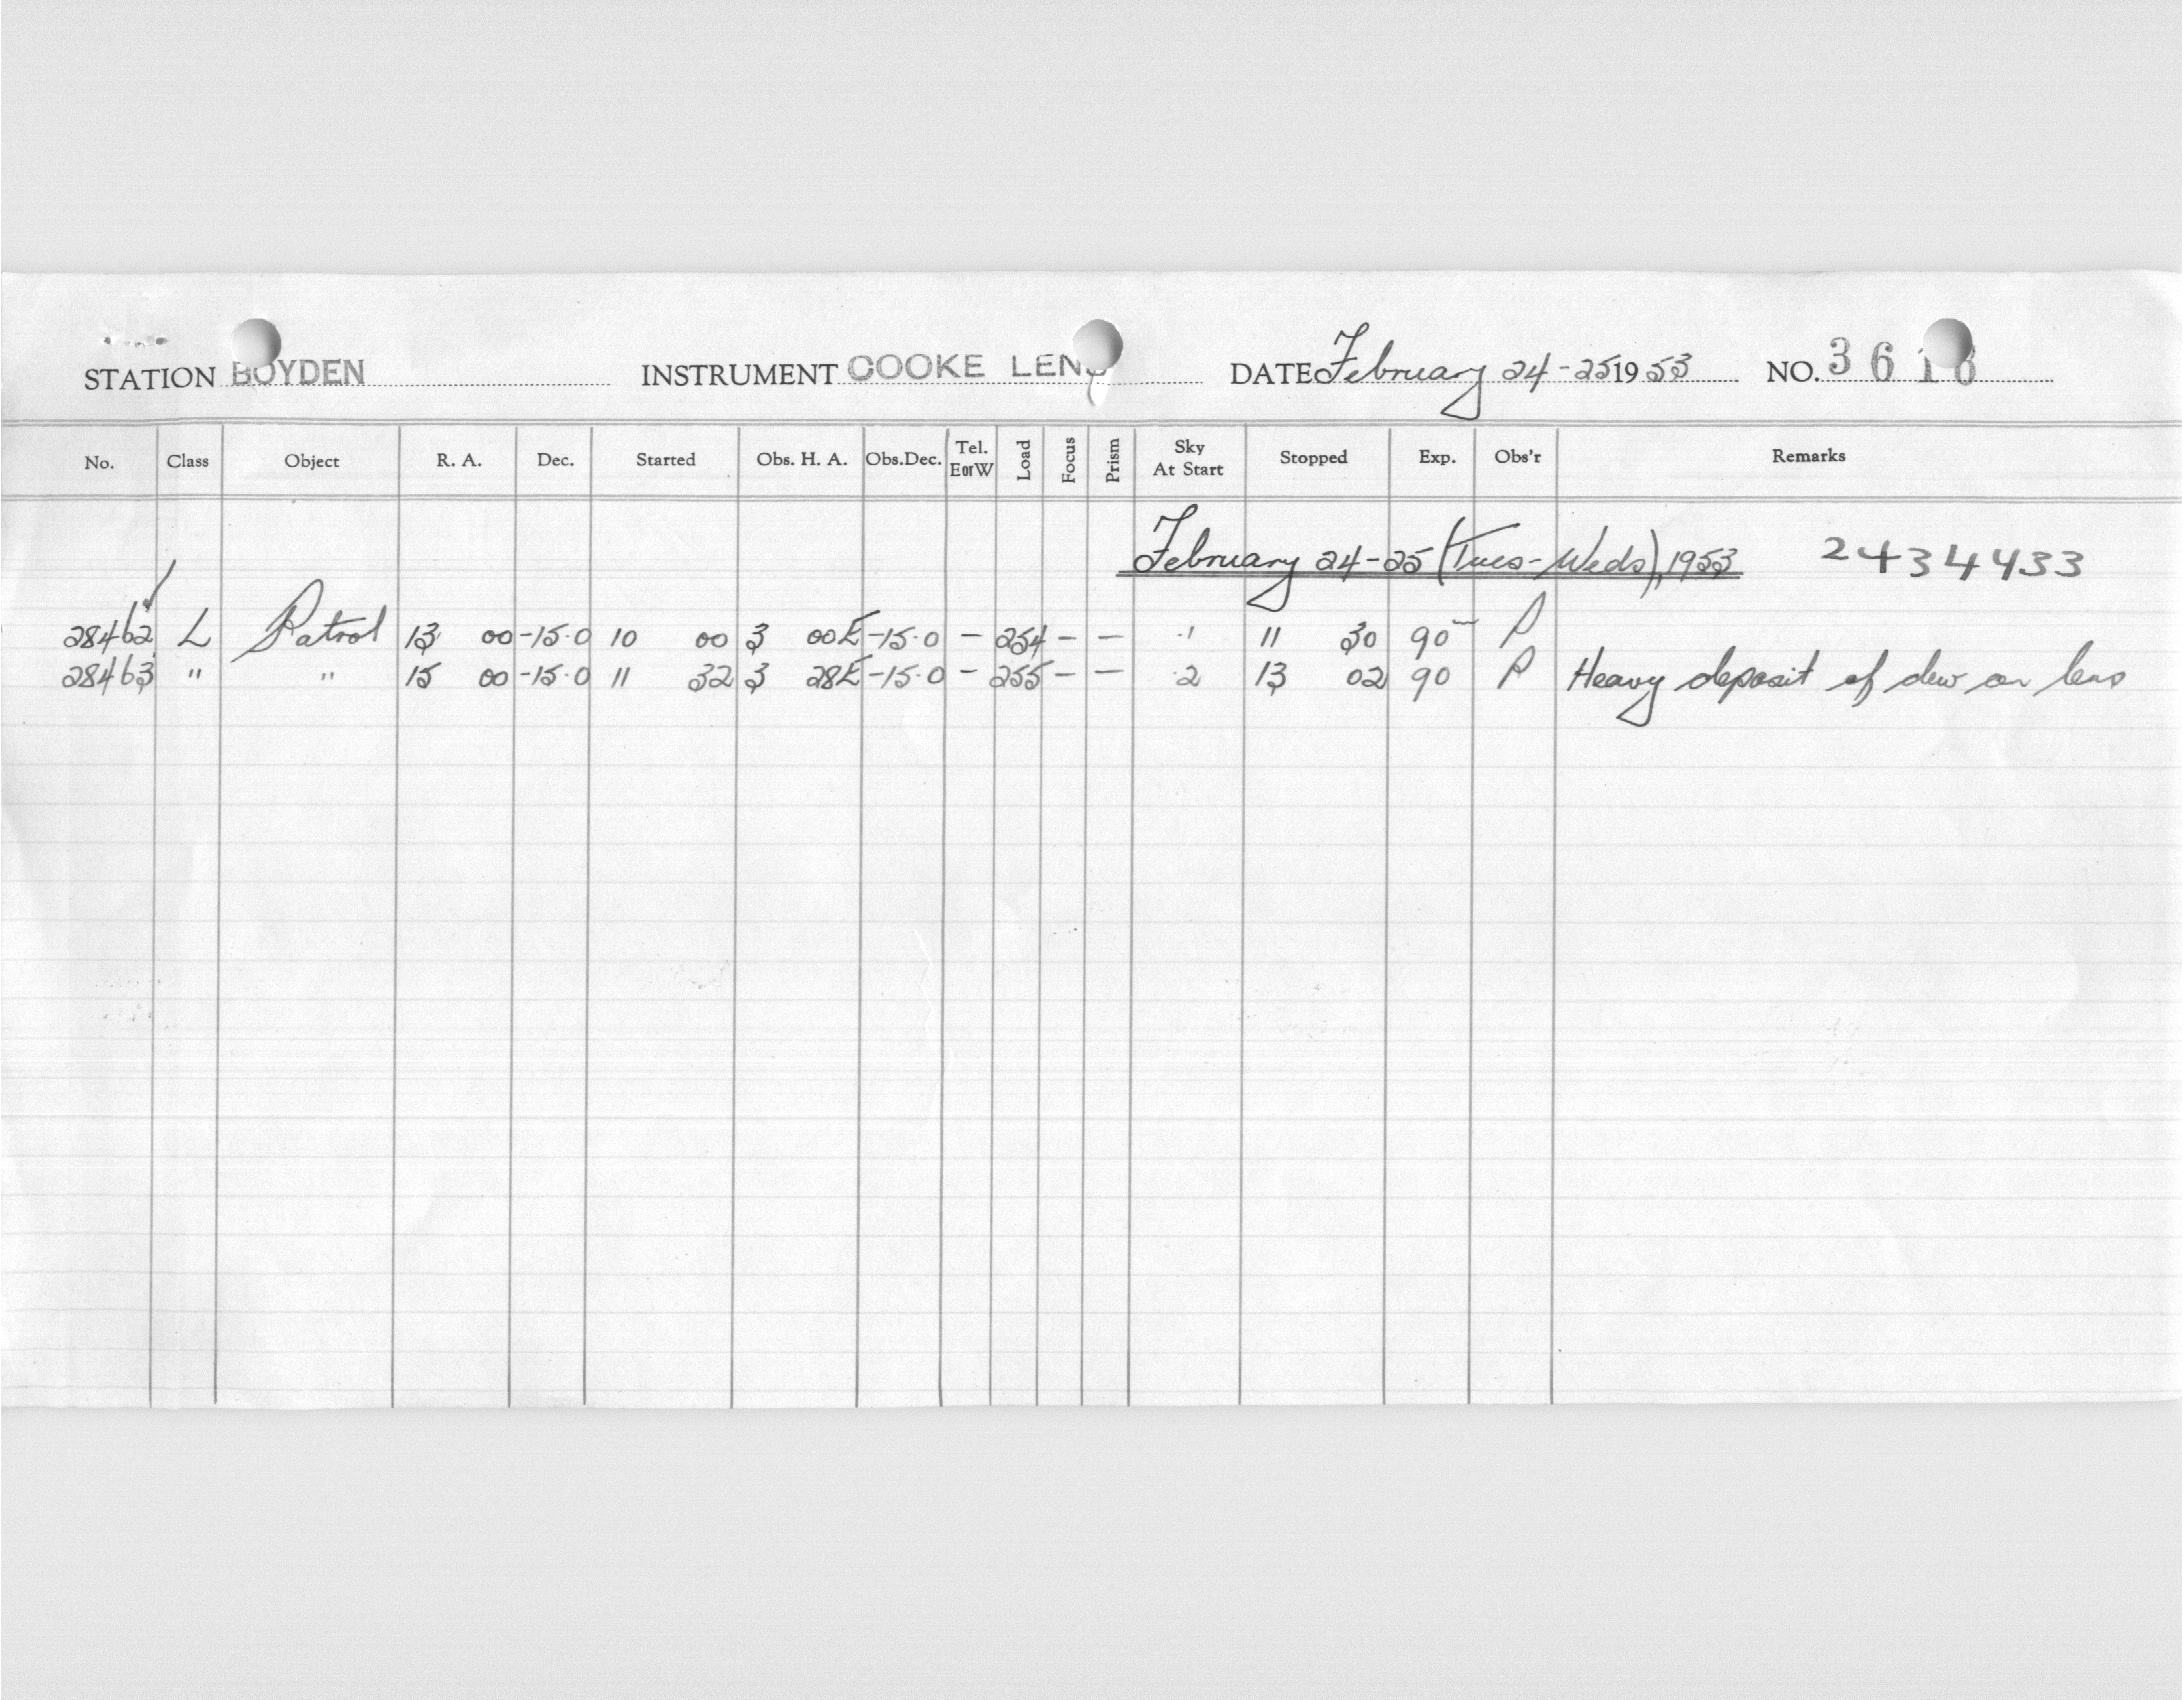 STATION BOYDEN INSTRUMENT COOKE LENS DATE February 24-25 1953 NO. 3618
No. Class Object R. A. Dec. Started Obs. H. A. Obs.Dec. Tel. E or W Load Focus Prism Sky At Start Stopped Exp. Obs'r Remarks
February 24-25 (Tues-Weds), 1953 2434433
28462 ✓ L Patrol 13 00 -15.0 10 00 3 00E -15.0 - 254 - - .1 11 30 90m P
28463 " " 15 00 -15.0 11 32 3 28E -15.0 - 255 - - .2 13 02 90 P Heavy deposit of dew on lens